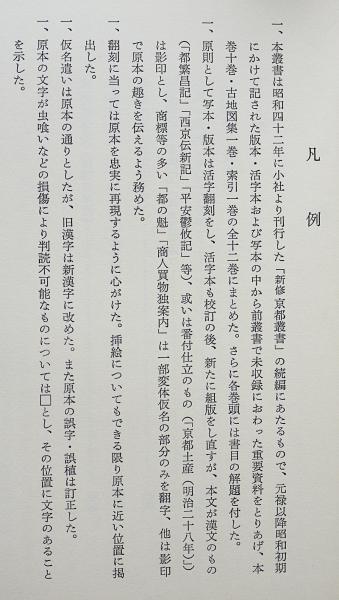 凡例
一、本叢書は昭和四十二年に小社より刊行した「新修京都叢書」の続編にあたるもので、元禄以降昭和初期
にかけて記された版本・活字本および写本の中から前叢書で未収録におわった重要資料をとりあげ、本
巻十巻・古地図集一巻・索引一巻の全十二巻にまとめた。さらに各巻頭には書目の解題を付した。
一、原則として写本・版本は活字翻刻をし、活字本も校訂の後、新たに組版をし直すが、本文が漢文のもの
(「都繁昌記」「西京伝新記」「平安鬱攸記」等)、或いは番付仕立のもの(「京都土産(明治二十八年)」)
は影印とし、商標等の多い「都の魁」「商人買物独案内」は一部変体仮名の部分のみを翻字、他は影印
で原本の趣きを伝えるよう務めた。
一、翻刻に当っては原本を忠実に再現するように心がけた。挿絵についてもできる限り原本に近い位置に掲
出した。
一、仮名遣いは原本の通りとしたが、旧漢字は新漢字に改めた。また原本の誤字・誤植は訂正した。
一、原本の文字が虫喰いなどの損傷により判読不可能なものについては□とし、その位置に文字のあること
を示した。